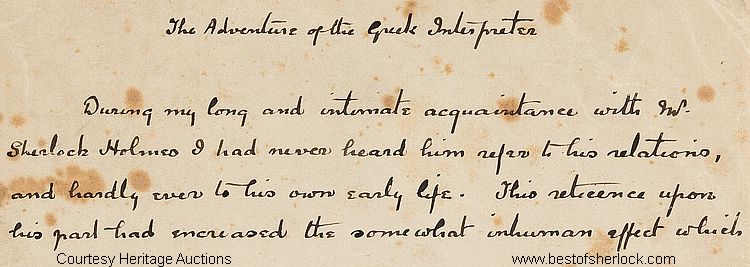 The Adventure of the Greek Interpreter
During my long and intimate acquaintance with Mr.
Sherlock Holmes I had never heard him refer to his relations,
and hardly ever to his own early life. This reticence upon
his part had increased the somewhat inhuman effect which
Courtesy Heritage Auctions www.bestofsherlock.com